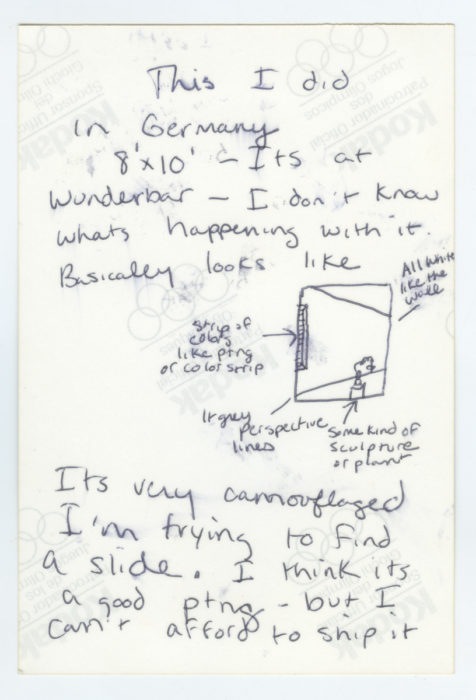 This I did
In Germany
8'x10' - Its at
Wunderbar - I don't know
whats happening with it.
Basically looks like
All white
like the
wall
strip of
colors
like ptng
or color strip
lt grey
perspective
lines
some kind of
sculpture
or plant
Its very camouflaged
I'm trying to find
a slide. I think its
a good ptng - but I
can't afford to ship it
Kodak
Patrocinador Oficial
dos
Jogos Olímpicos
Kodak
Kodak
Kodak